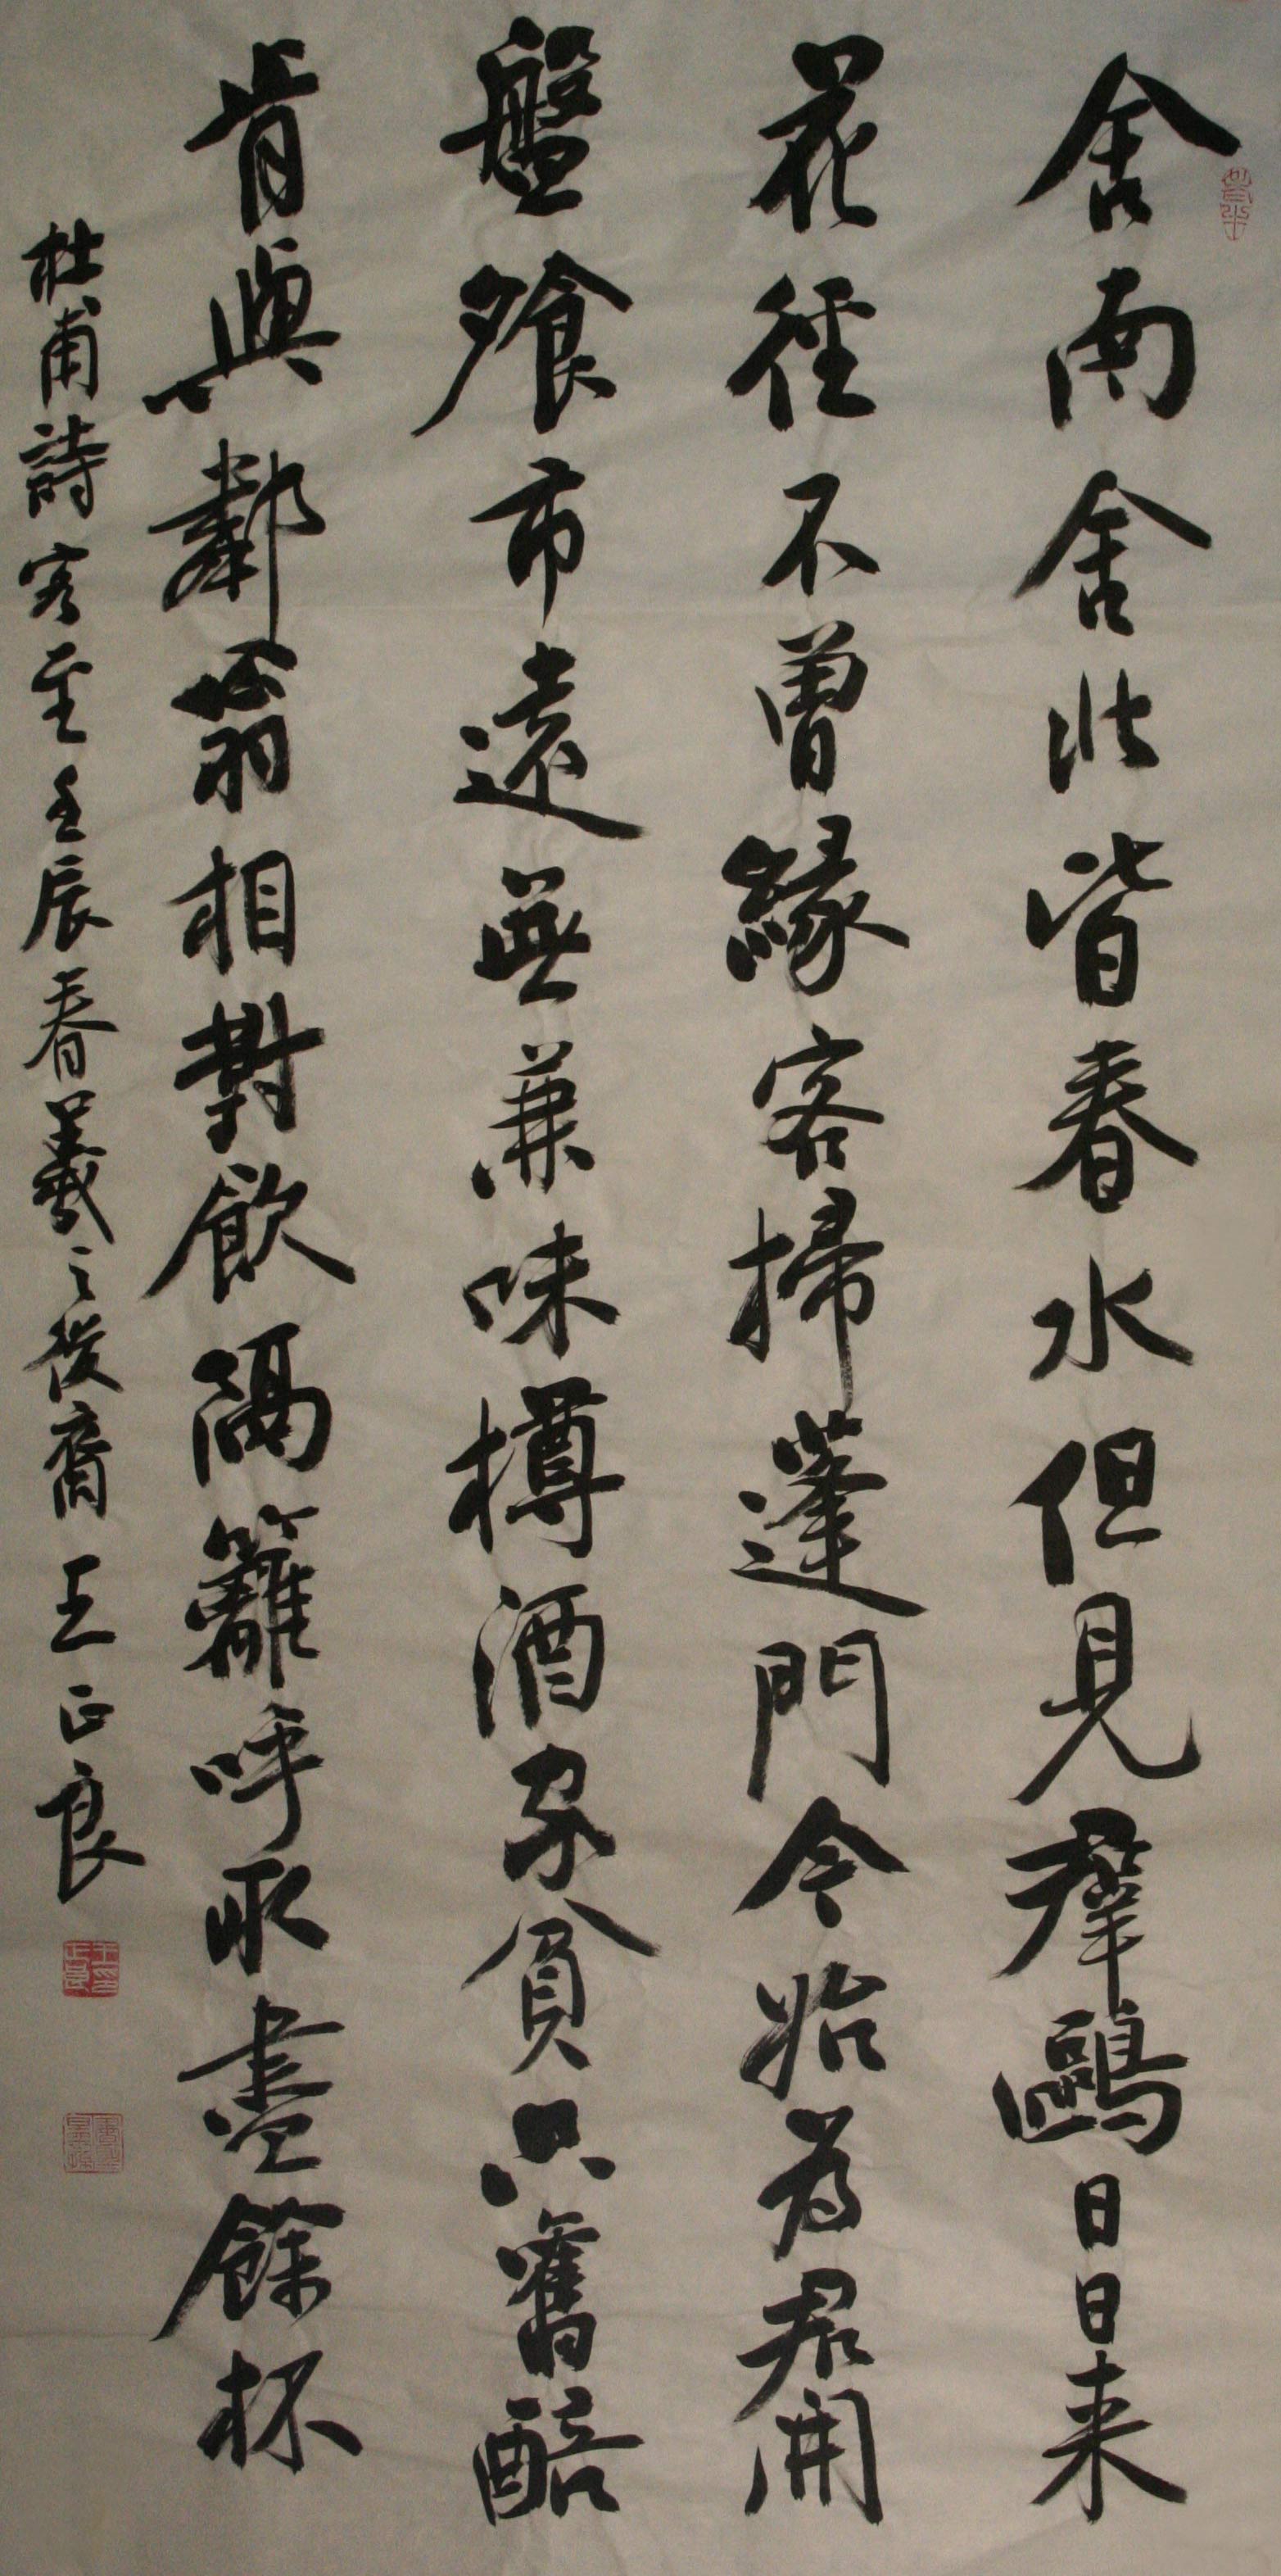 舍南舍北皆春水但見羣鷗日日来
花徑不曾緣客掃蓬門今始為君開
盤飧市遠無兼味樽酒家貧只舊醅
肯與鄰翁相對飲隔籬呼取盡餘杯
杜甫詩客至壬辰春羲之後裔王正良